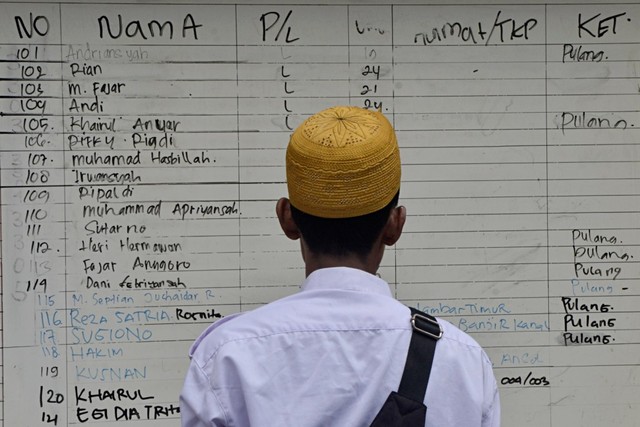 NO NAMA P/L Umu numat/TKP KET.
101 Andriansyah L Pulang.
102 Rian L 24 -
103 m. Fajar L 21
104 Andi L 24.
105. Khairul Anwar L Pulang.
106.
107. muhamad Hasbillah.
108 Irwansyah
109 Ripaldi
110 muhammad Apriyansah.
111 Sutarno
112. Heri Hermawan Pulang.
113 Fajar Anggoro Pulang.
119 Dani Febriyansah Pulang
115 M. Sofian R. Pulang -
116 REZA SATRIA Timur Pulang.
117 SUGIONO BANJIR Kanal Pulang
118 HAKIM Pulang.
119 KUSNAN Ancol
120 KHAIRUL 004/003
121 EGI DIA